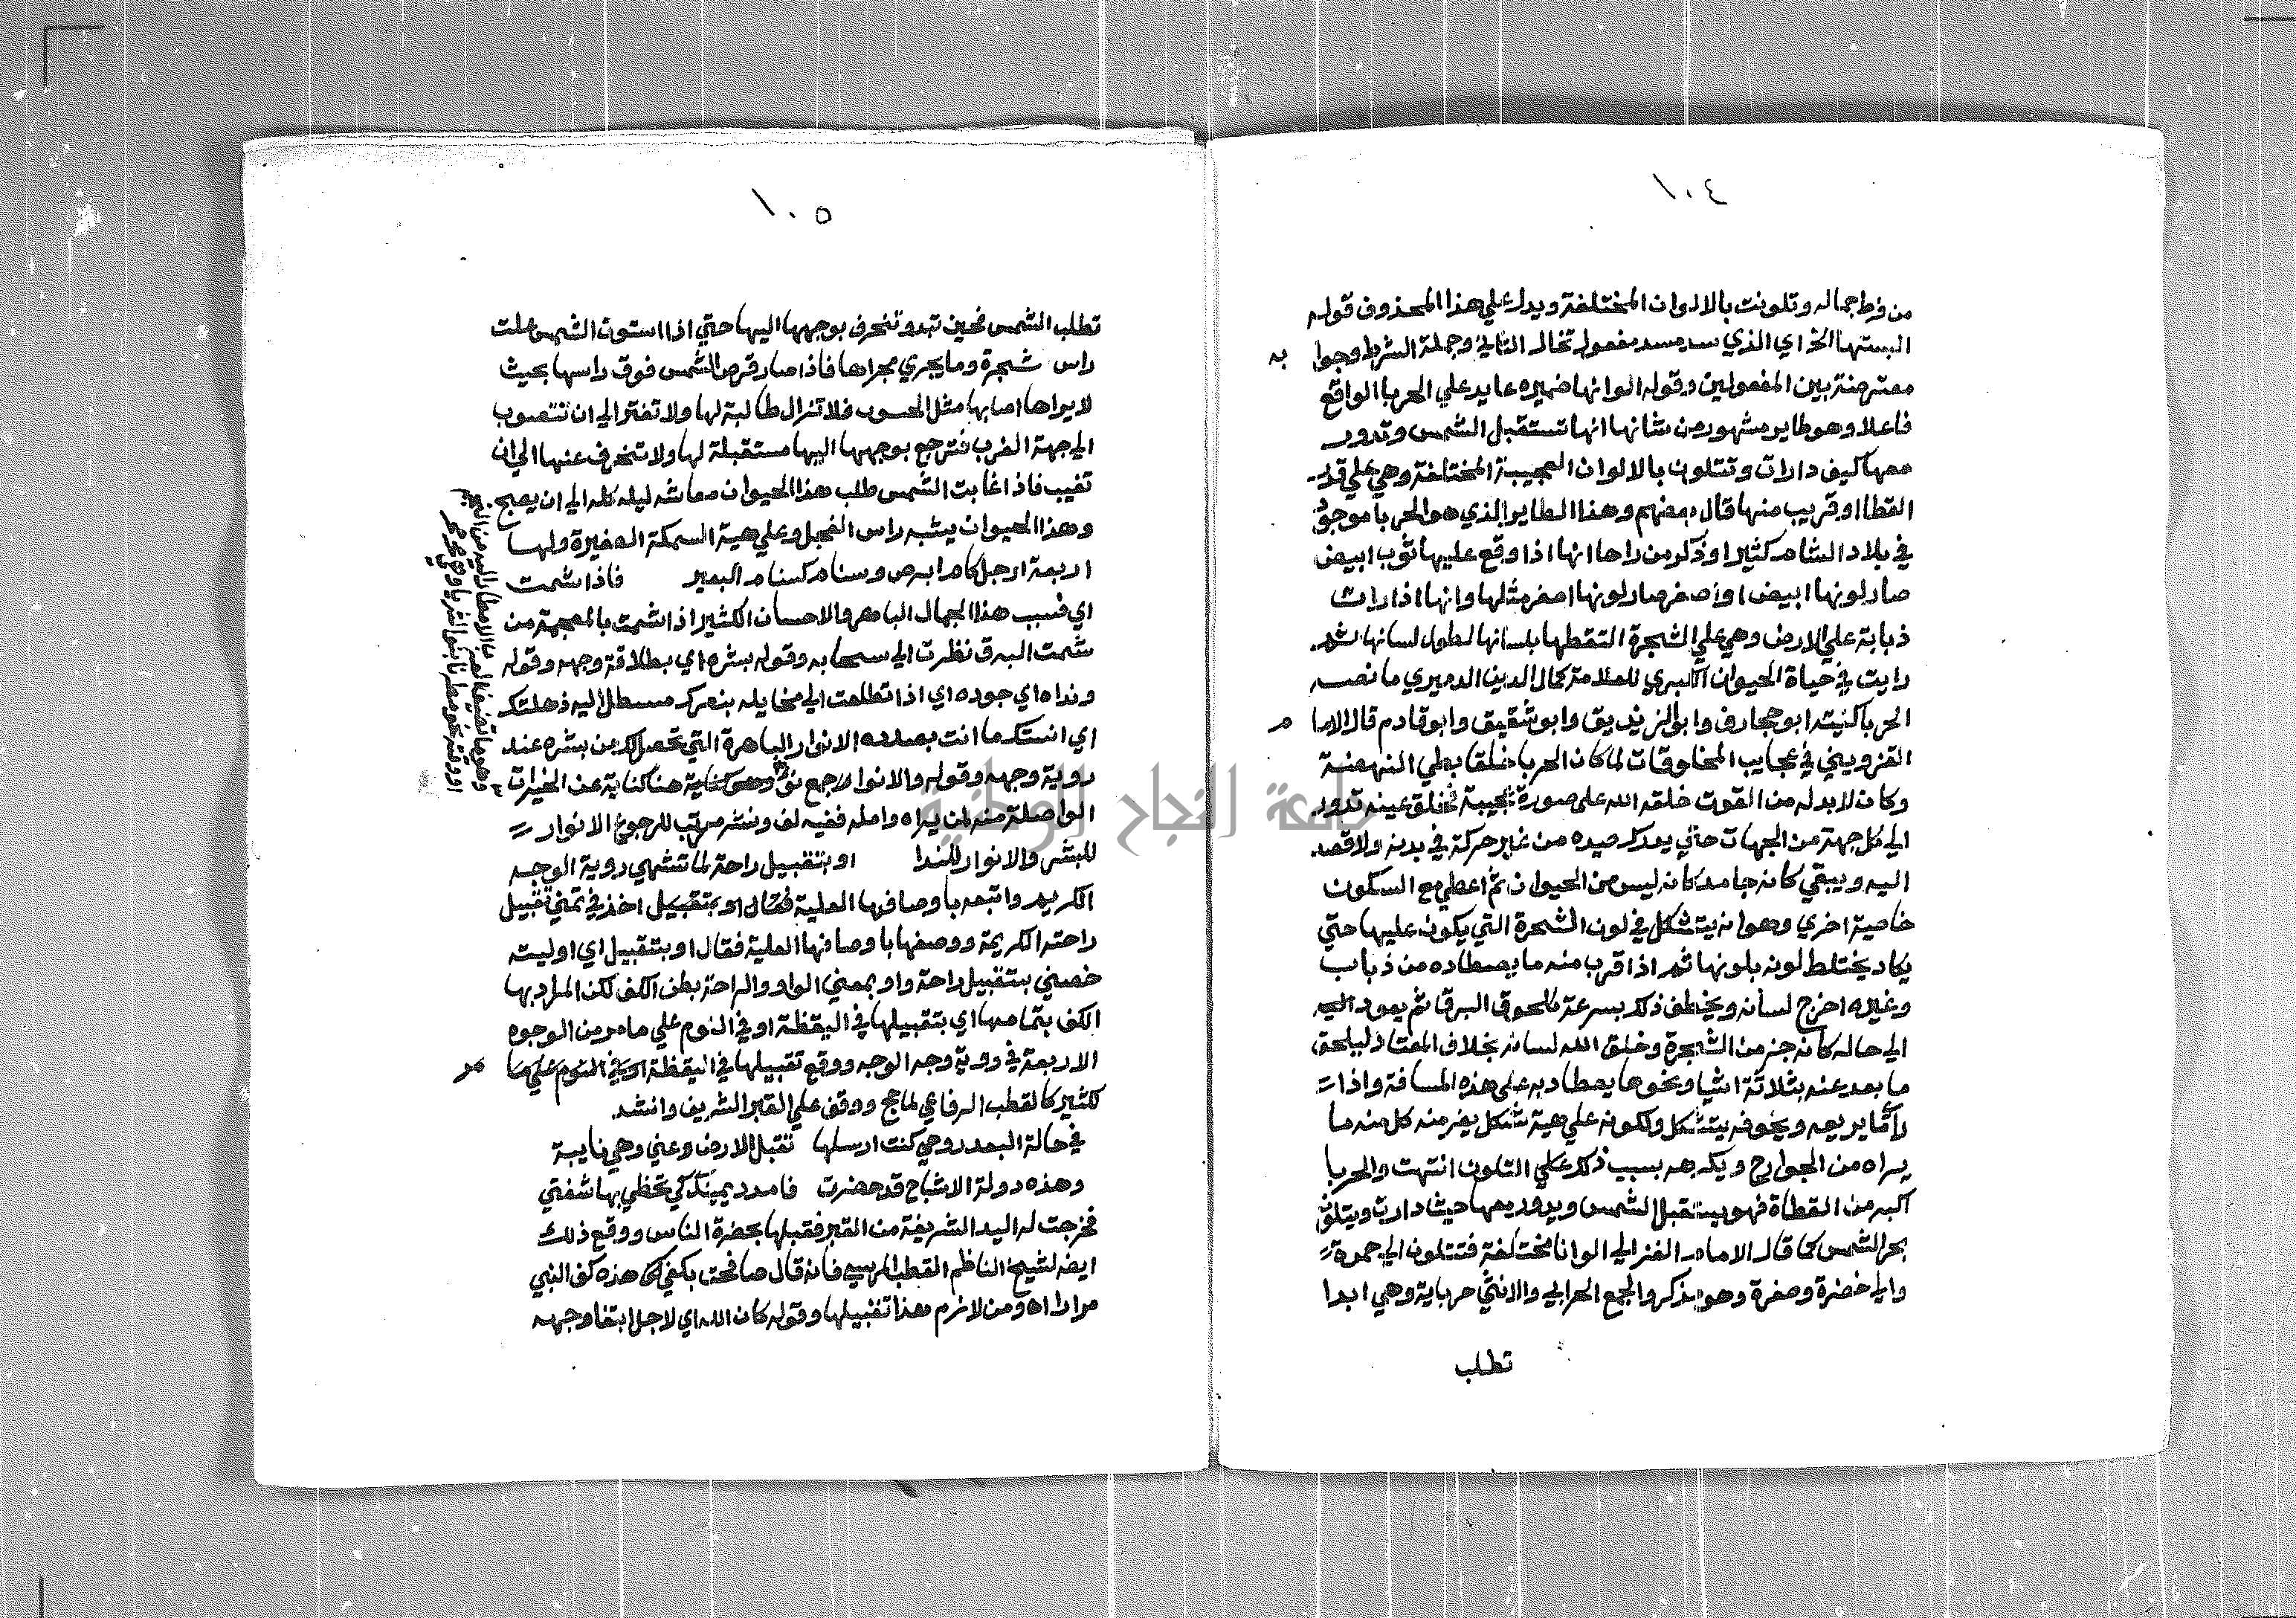 ١٠٤
من فرط جماله وتلونت بالالوان المختلفة ويدل علي هذا المحذوف قوله
البستها الخ اي الذي سد مسد مفعول تخال الثاني وجملة الشرط وجوابه
معترضة بين المفعولين وقوله الوانها ضميره عايد علي الحربا الواقع
فاعلا وهو طاير مشهور من شانها انها تستقبل الشمس وتدور
معها كيف دارات وتتلون بالالوان العجيبة المختلفة وهي علي قدر
القطا او قريب منها قال بعضهم وهذا الطاير الذي هو الحربا موجود
في بلاد الشام كثيرا وذكر من راها انها اذا وقع عليها ثوب ابيض
صار لونها ابيض او اصفر صار لونها اصفر مثلها وانها اذا رات
ذبابة علي الارض وهي علي الشجرة التقطها بلسانها لطول لسانها ثم
رايت في حياة الحيوان الكبري للعلامة كمال الدين الدميري ما نصه
الحربا كنيته ابو حجارف وابو الزنديق وابو شقيق وابو قادم قال الامام
القزويني في عجايب المخلوقات لما كان الحربا خلقا بطي النهضة
وكان لا بد له من القوت خلقه الله علي صورة عجيبة فخلق عينه تدور
الي كل جهة من الجهات حتي يدرك صيده من غير حركة في بدنه ولا قصد
اليه ويبقي كانه جامد كانه ليس من الحيوان ثم اعطي مع السكون
خاصية اخري وهو انه يتشكل في لون الشجرة التي يكون عليها حتي
يكاد يختلط لونه بلونها ثم اذا قرب منه ما يصطاده من ذباب
وغيره اخرج لسانه ويخطف ذلك بسرعة كلحوق البرق ثم يعود اليه
الي حاله كانه جزء من الشجرة وخلق الله لسانه بخلاف المعتاد ليلحق
ما بعد عنه بثلاثة اشيا ونحوها يصطاد به علي هذه المسافة واذا
راي ما يريعه ويخوفه يتشكل ولكونه علي هية شكل يفر منه كل منه ما
يراه من الجوارح ويكرهه بسبب ذلك علي التلون انتهت والحربا
اكبر من القطاة فهو يستقبل الشمس ويدور معها حيث دارت ويتلون
بحر الشمس كما قال الامام الغزالي الوانا مختلفة فتتلون الي حمرة
والي خضرة وصفرة وهو ذكر والجمع الحرابي والانثي حرباية وهي ابدا
تطلب
١٠٥
تطلب الشمس فحين تبدو تنحرف بوجهها اليها حتي اذا استوت الشمس علت
راس شجرة وما يجري مجراها فاذا صار قرص الشمس فوق راسها بحيث
لا يراها اصابها مثل الجنون فلا تزال طالبة لها ولا تفتر الي ان تتصوب
الي جهة الغرب فترجع بوجهها اليها مستقبلة لها ولا تنحرف عنها الي ان
تغيب فاذا غابت الشمس طلب هذا الحيوان معاشه ليله كله الي ان يصبح
وهذا الحيوان يشبه راس العجل وعلي هية السمكة الصغيرة ولها
اربعة ارجل كام ابرص وسنام كسنام البعير فاذا شمت
اي فبسبب هذا الجمال الباهر والاحسان الكثير اذا شمت بالمعجمة من
شمت البرق نظرت الي سحابه وقوله بشره اي بطلاقة وجهه وقوله
ونداه اي جوده اي اذا تطلعت الي مخايله اذهلتك
اي انستك ما انت بصدده الانوار الباهرة التي تحصل لك من بشره عند
روية وجهه وقوله والانوا جمع نوء هنا كناية عن الخيرات
الواصلة منه لمن يراه وامله ففيه لف ونشر مرتب لرجوع الانوار
للبشر والانوا للندا او بتقبيل راحة لما تشهي روية الوجه
الكريم واتبعه باوصافها العلية فقال او بتقبيل اخذ في تمني تقبيل
راحته الكريمة ووصفها باوصافها العلية فقال او بتقبيل اي اوليته
خصني بتقبيل راحة واو بمعني الواو والراحة بطن الكف لكن المراد بها
الكف بتمامها اي بتقبيلها في اليقظة او في النوم علي ما مر من الوجوه
الاربعة في روية وجه الوجه ووقع تقبيلها في اليقظة او في النوم علي ما مر
لكثير كالقطب الرفاعي لما حج ووقف علي القبر الشريف وانشد
في حالة البعد روحي كنت ارسلها تقبل الارض عني وهي نايبة
وهذه دولة الاشباح قد حضرت فامدد يمينك كي تحظي بها شفتي
فخرجت له اليد الشريفة من القبر فقبلها بحضرة الناس ووقع ذلك
ايضا لشيخ الناظم القطب المرسي فانه قال صافحت بكفي هذه كف النبي
مرارا اه ومن لازم هذا تقبيلها وقوله كان الله اي لاجل ابتغا وجهه